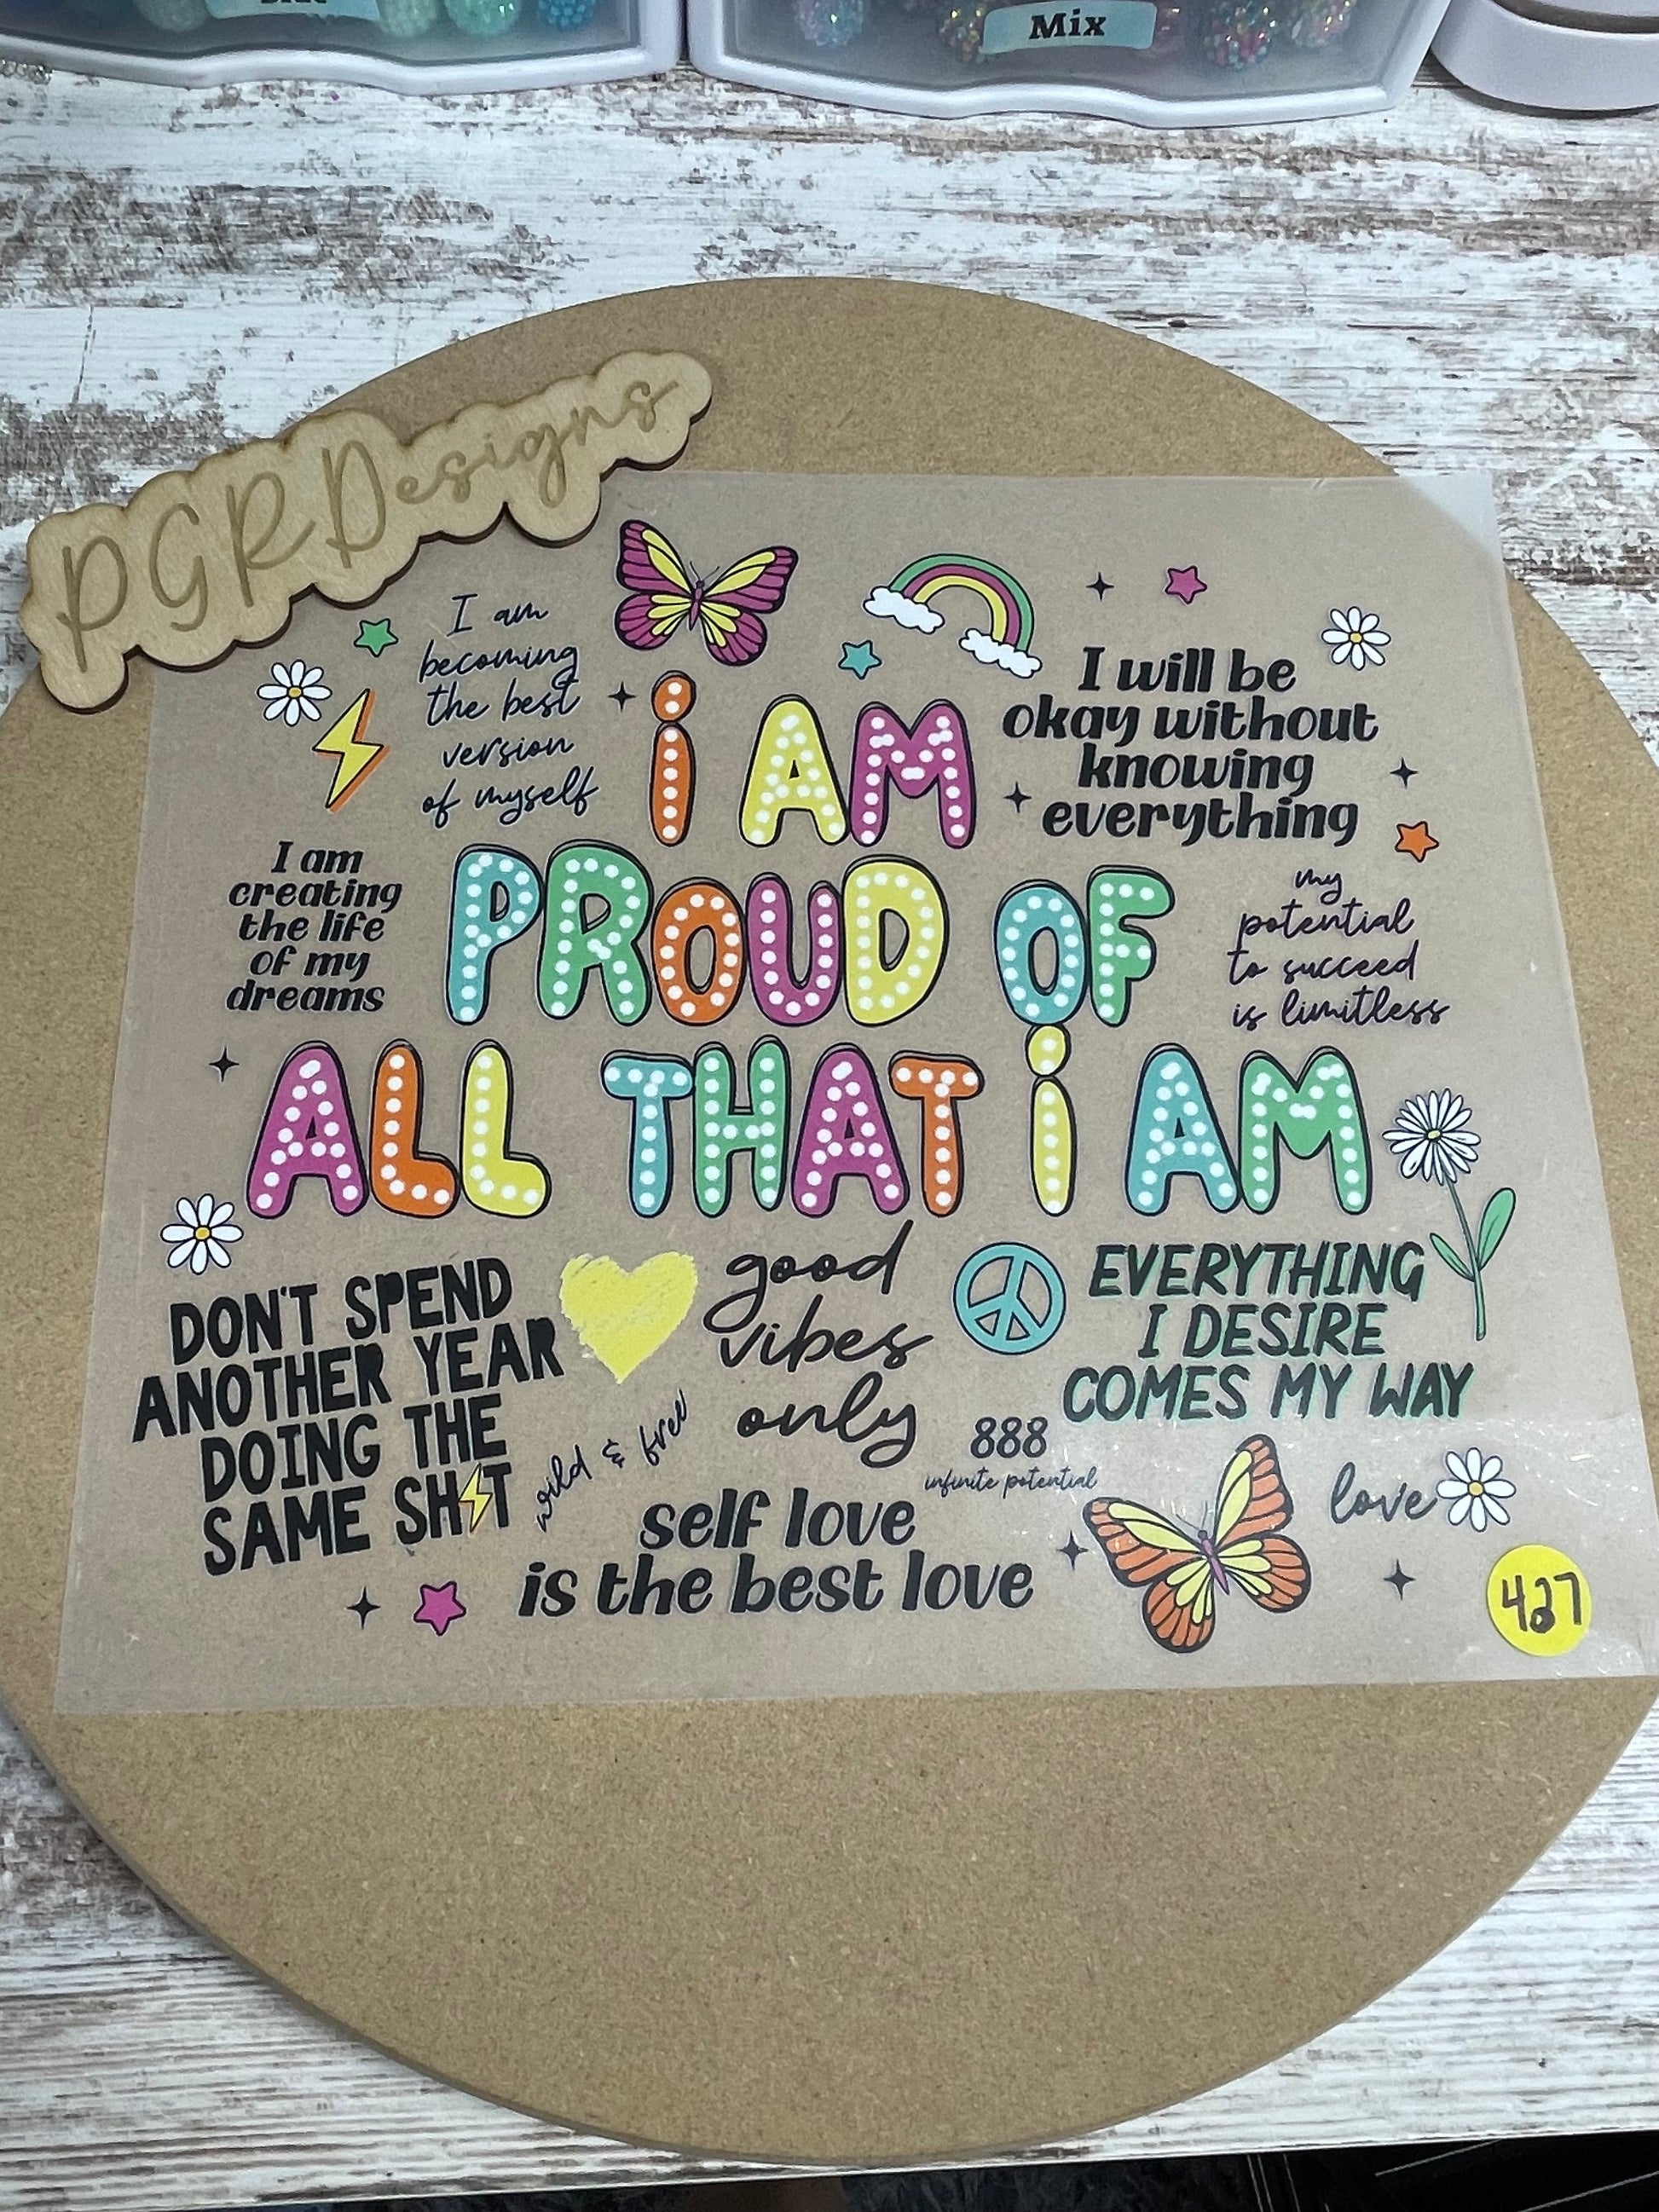 Mix
PGRDesigns
I am
becoming
the best
version
of myself
i AM
I will be
okay without
knowing
everything
I am
creating
the life
of my
dreams
PROUD OF
my
potential
to succeed
is limitless
ALL THAT i AM
DON'T SPEND
ANOTHER YEAR
DOING THE
SAME SH⚡T
wild & free
good
vibes
only
EVERYTHING
I DESIRE
COMES MY WAY
888
infinite potential
love
self love
is the best love
427